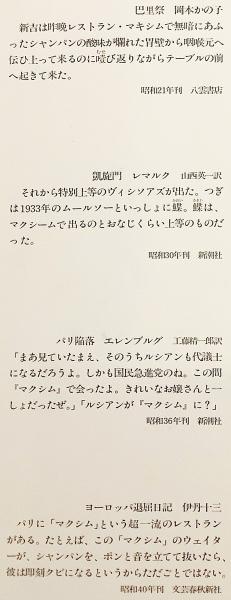 巴里祭　岡本かの子
新吉は昨晩レストラン・マキシムで無暗にあふ
ったシャンパンの酸味が爛れた胃壁から咽喉元へ
伝ひ上って来るのに噎び返りながらテーブルの前
へ起きて来た。
昭和21年刊　八雲書店
凱旋門　レマルク　山西英一訳
それから特別上等のヴィシソアズが出た。つぎ
は1933年のムールソーといっしょに鰈。鰈は、
マクシームで出るのとおなじくらい上等のものだ
った。
昭和30年刊　新潮社
パリ陥落　エレンブルグ　工藤精一郎訳
「まあ見ていたまえ、そのうちルシアンも代議士
になるだろうよ。しかも国民急進党のね。この間
『マクシム』で会ったよ。きれいなお嬢さんと一
しょだったぜ。」「ルシアンが『マクシム』に？」
昭和36年刊　新潮社
ヨーロッパ退屈日記　伊丹十三
パリに「マクシム」という超一流のレストラン
がある。たとえば、この「マクシム」のウェイタ
ーが、シャンパンを、ポンと音を立てて抜いたら、
彼は即刻クビになるというからただごとではない。
昭和40年刊　文芸春秋新社